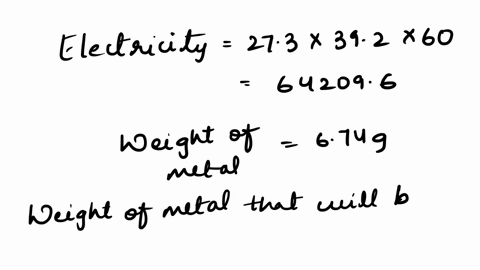 Electricity = 27.3 × 39.2 × 60
= 64209.6
Weight of metal = 6.74g
Weight of metal that will b